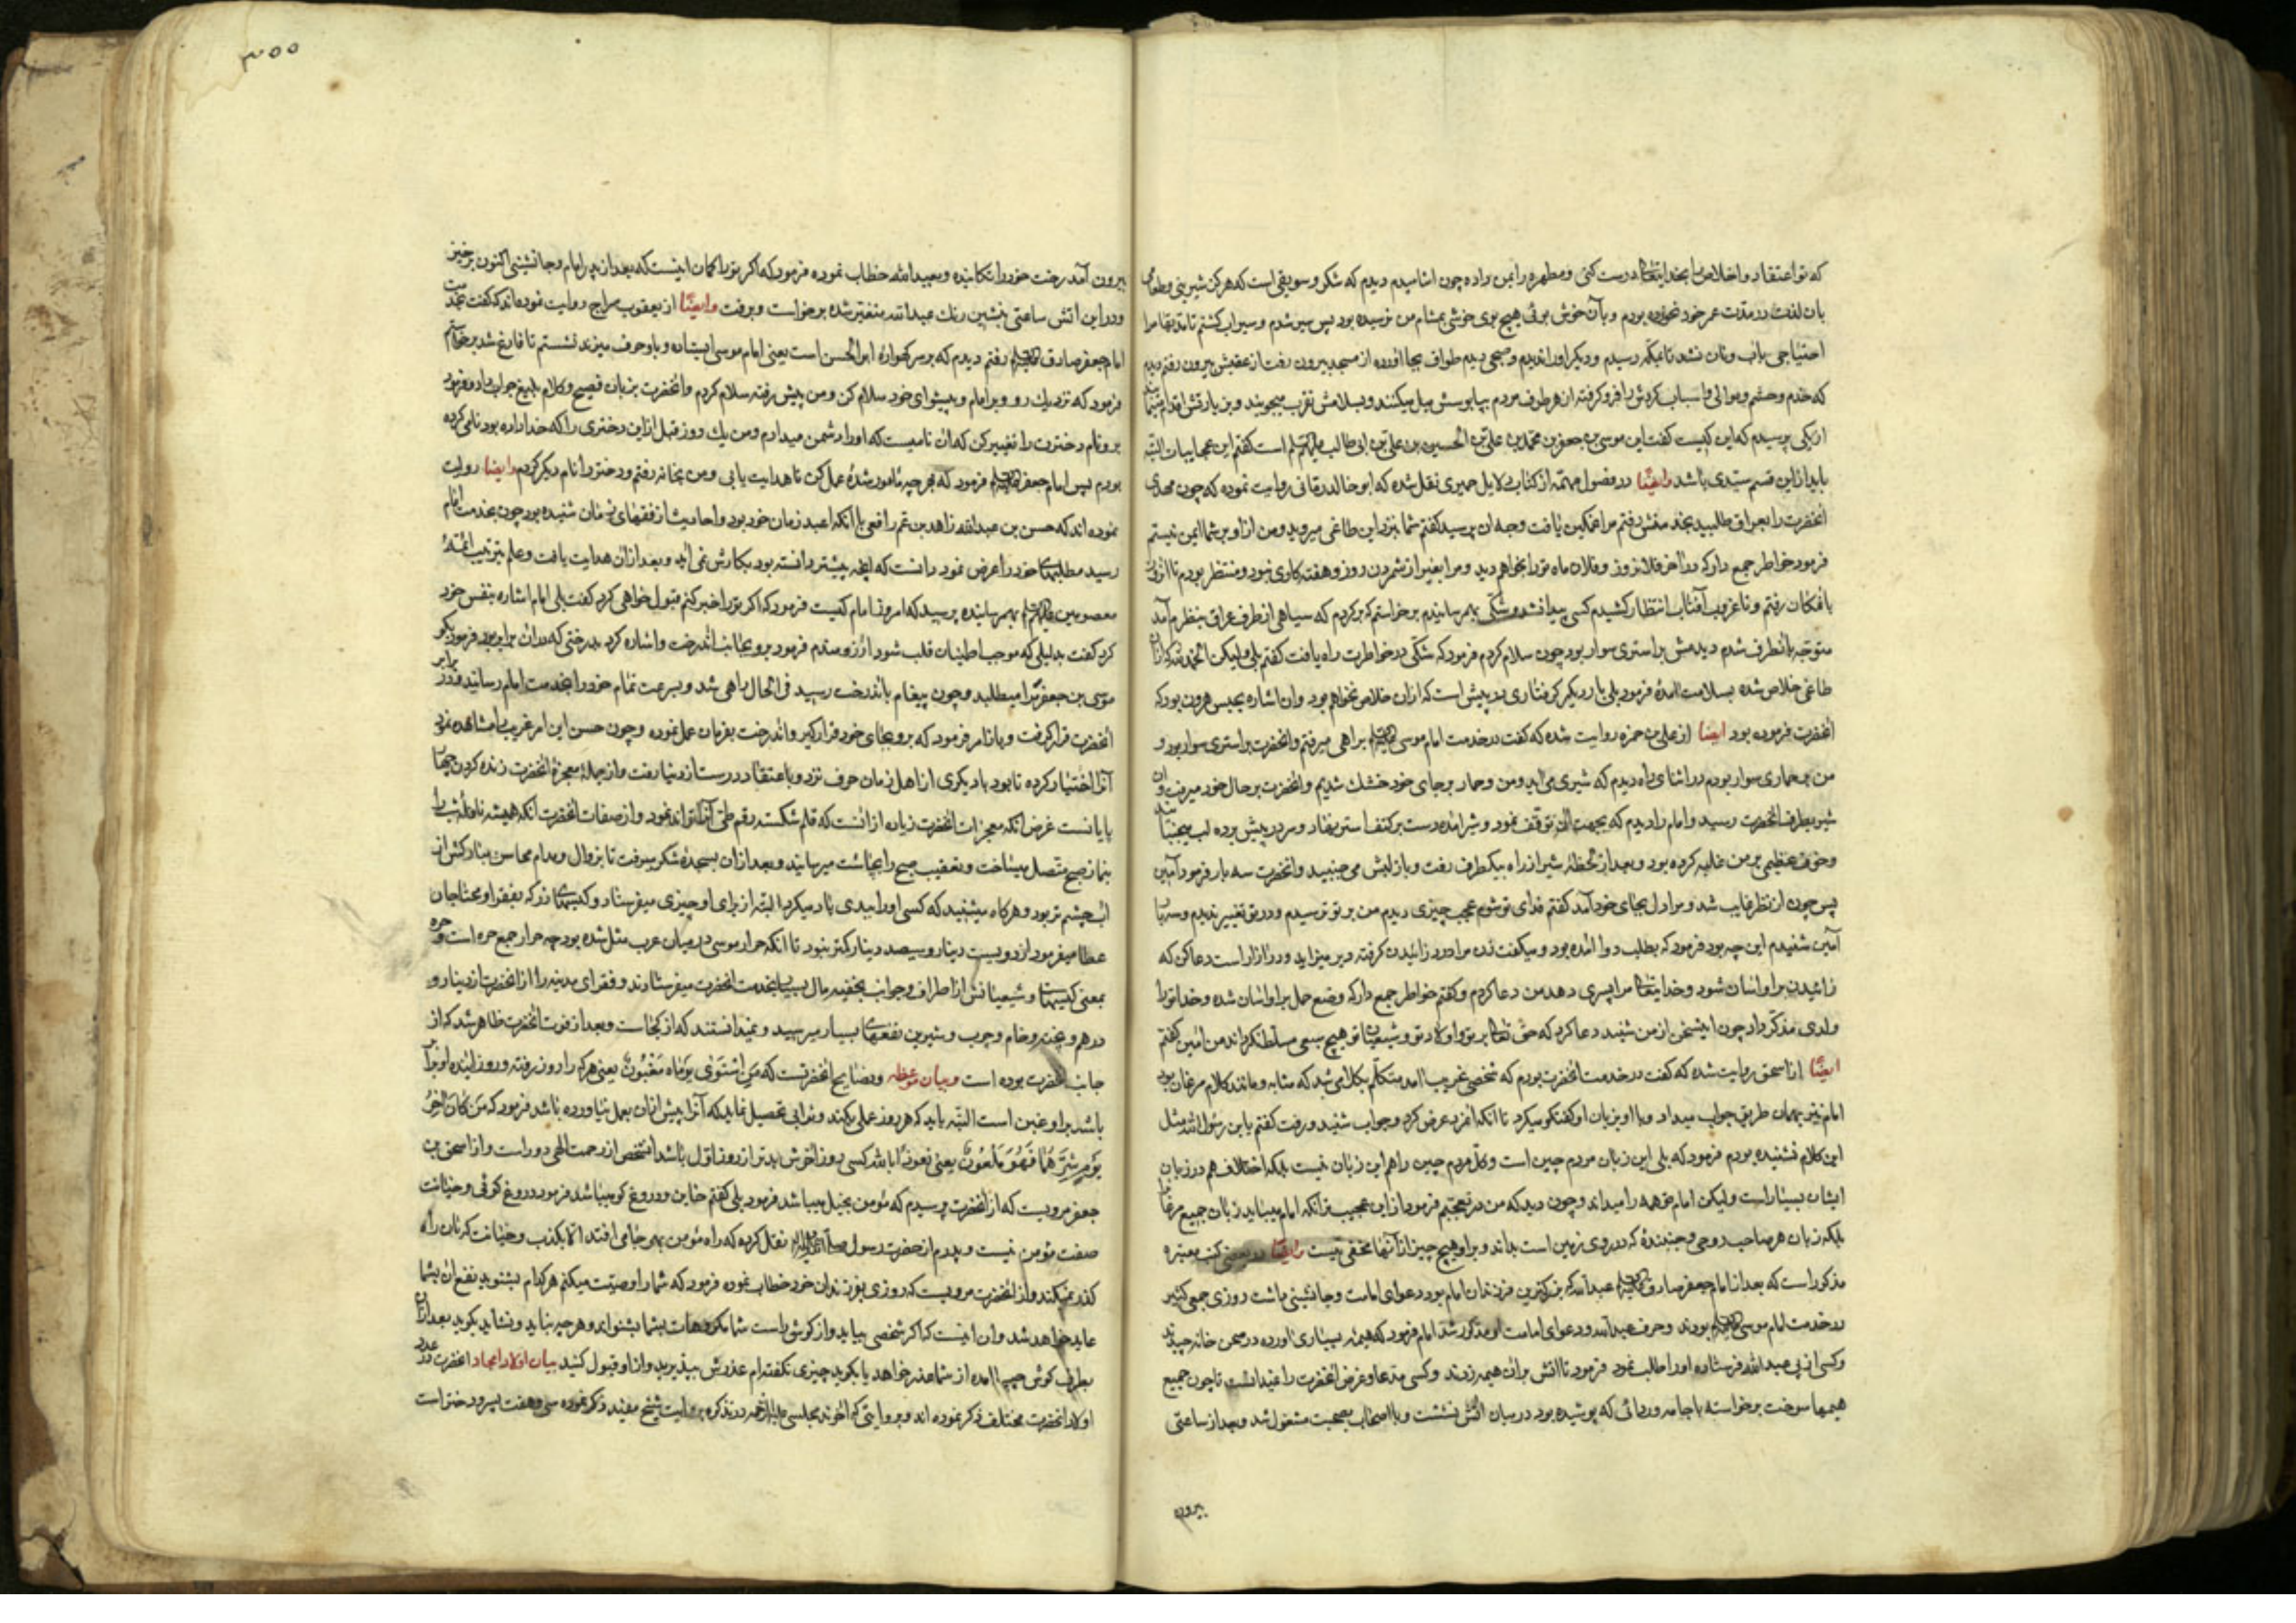 که تو اعتقاد و اخلاص را بخدایتعالی درست کنی و مطهره را بمن داده چون اشامیدم دیدم که شکر و سویقی است که هرگز شیرینی و طعامی
بان لذت در مدت عمر خود نخورده بودم و بآن خوش بوئی هیچ بوی خوشی بمشام من نرسیده بود پس سیر شدم و سیراب کشتم تا مدتها مرا
احتیاجی باب و نان نشد تا بمکه رسیدم و دیکر او را ندیدم و صبحی دیدم طواف بجا آورده از مسجد بیرون رفت از عقبش بیرون رفتم دیدم
که خدم و حشم و موالی و اسباب کردش را فرو کرفته از هر طرف مردم بپابوسش میل میکنند و بسلامش تقرب میجویند و بزیارتش اقدام مینمایند
از یکی پرسیدم که این کیست کفت این موسی بن جعفر بن محمد بن علی بن الحسین بن علی بن ابی طالب علیهم السلم است کفتم این عجایبات البته
باید از این قسم سیدی باشد وایضا در فصول مهمه از کتاب دلایل حمیری نقل شده که ابو خالد زقانی روایت نموده که چون مهدی
انحضرت را بعراق طلبید بخدمتش رفتم مرا غمکین یافت وجه ان پرسید کفتم شما بنزد این طاغی میروید و من از او بر شما ایمن نیستم
فرمود خواطر جمع دار که در اخر فلانروز و فلان ماه تو را بخواهم دید و مرا بغیر از شمردن روز و هفته کاری نبود و منتظر بودم تا انروز
بانمکان رفتم و تا غروب آفتاب انتظار کشیدم کسی پیدا نشد و شکی بهم رسانیدم برخواستم که برکردم که سیاهی از طرف عراق بنظرم آمد
متوجه بانطرف شدم دیدمش بر استری سوار بود چون سلام کردم فرمود که شکی در خواطرت راه یافت کفتم بلی ولیکن الحمد لله که از ان
طاغی خلاص شده بسلامت امدهٔ فرمود بلی بار دیکر کرفتاری در پیش است که از ان خلاص نخواهم بود و ان اشاره بحبس هرون بود که
انحضرت فرموده بود ایضا از علی بن حمزه روایت شده که کفت در خدمت امام موسی علیه السلم براهی میرفتم و انحضرت بر استری سوار بود و
من بر حماری سوار بودم در اثنای راه دیدم که شیری می اید و من و حمار بر جای خود خشک شدیم و انحضرت بر حال خود میرفت و ان
شیر بطرف انحضرت رسید و امام را دیدم که بجهت ان توقف نمود و شیر امده دست بر کتف استر نهاد و سر در پیش برده لب میجنبانید
و خوف عظیمی بر من غلبه کرده بود و بعد از لحظهٔ شیر از راه بیکطرف رفت و باز لبش می جنبید و انحضرت سه بار فرمود آمین
پس چون از نظر غایب شد و مرا دل بجای خود آمد کفتم فدای تو شوم عجب چیزی دیدم من بر تو ترسیدم و در تو تغییر ندیدم و سه بار
آمین شنیدم این چه بود فرمود که بطلب دوا امده بود و میکفت زن مرا درد زائیدن کرفته دیر میزاید و در ازار است دعا کن که
زائیدن بر او اسان شود و خدایتعالی مرا پسری دهد من دعا کردم و کفتم خواطر جمع دار که وضع حمل بر او اسان شده و خدا تو را
ولدی مذکر داد چون اینسخن از من شنید دعا کرد که حق تعالی بر تو و اولاد تو و شیعیان تو هیچ سبعی مسلط نکرداند من امین کفتم
ایضا از اسحق روایت شده که کفت در خدمت انحضرت بودم که شخصی غریب امد متکلم بکلامی شد که مشابه و مانند کلام مرغان بود
امام نیز بهمان طریق جواب میداد و با او بزبان او کفتکو میکرد تا انکه انمرد عرض کرد و جواب شنید و رفت کفتم یا بن رسول الله مثل
این کلام نشنیده بودم فرمود که بلی این زبان مردم چین است و کل مردم چین را هم این زبان نیست بلکه اختلاف هم در زبان
ایشان بسیار است ولیکن امام همه را میداند و چون دید که من در تعجبم فرمود از این عجیب تر انکه امام میباید زبان جمیع مرغان
بلکه زبان هر صاحب روحی و جنبندهٔ که در روی زمین است بداند و بر او هیچ چیز از آنها مخفی نیست وایضا در بعضی کتب معتبره
مذکور است که بعد از امام جعفر صادق علیه السلم عبد الله که بزرکترین فرزندان امام بود دعوای امامت و جانشینی داشت روزی جمعی کثیر
در خدمت امام موسی علیه السلم بودند و حرف عبد الله و دعوای امامت او مذکور شد امام فرمود که هیمه بسیاری اورده در صحن خانه چیدند
و کسی از پی عبد الله فرستاده او را طلب نمود فرمود تا اتش بر ان هیمه زدند و کسی مدعا و غرض انحضرت را نمیدانست تا چون جمیع
هیمها سوخت برخواسته با جامه و ردائی که پوشیده بود در میان اتش نشست و با اصحاب بصحبت مشغول شد و بعد از ساعتی
بیرون
۳۰۰
بیرون آمد رخت خود را تکانیده و بعبد الله خطاب نموده فرمود که اکر تو را کمان اینست که بعد از پدر امام و جانشینی اکنون برخیز
و در این اتش ساعتی بنشین رنک عبد الله متغیر شده برخواست و برفت وایضا از یعقوب سراج روایت نموده اند که کفت بخدمت
امام جعفر صادق علیه السلم رفتم دیدم که بر سر کهوارهٔ ابو الحسن است یعنی امام موسی ایستاده و با او حرف میزند نشستم تا فارغ شد برخواستم
فرمود که نزدیک رو و بر امام و پیشوای خود سلام کن و من پیش رفته سلام کردم و انحضرت بزبان فصیح و کلام بلیغ جواب داد و فرمود
برو نام دخترت را تغییر کن که ان نامیست که او را دشمن میدارم و من یک روز قبل از این دختری را که خدا داده بود نامی کرده
بودم پس امام جعفر علیه السلم فرمود که بهر چه مامور شدهٔ عمل کن تا هدایت یابی و من بخانه رفتم و دختر را نام دیکر کردم وایضا روایت
نموده اند که حسن بن عبد الله زاهد بن عم رافعی با انکه اعبد زمان خود بود و احادیث از فقهای زمان شنیده بود چون بخدمت امام
رسید مطلبهای خود را عرض نمود دانست که انچه پیشتر دانسته بود بکارش نمی اید و بعد از ان هدایت یافت و علم بترتیب ائمهٔ
معصومین علیهم السلم بهم رسانیده پرسید که امروز امام کیست فرمود که اکر تو را خبر کنم قبول خواهی کرد کفت بلی امام اشاره بنفس خود
کرد کفت بدلیلی که موجب اطینان قلب شود ارزومندم فرمود برو بجانب اندرخت و اشاره کرد بدرختی که در ان برابر بود فرمود بکو
موسی بن جعفر ترا میطلبد و چون پیغام باندرخت رسید فی الحال راهی شد و بسرعت تمام خود را بخدمت امام رسانید و در برابر
انحضرت قرار کرفت و بازامر فرمود که برو بجای خود قرار کیر و اندرخت بفرمان عمل نموده و چون حسن این امر غریب را مشاهده نمود
آنرا اختیار کرده تا بود با دیکری از اهل زمان حرف نزد و با اعتقاد درست از دنیا رفت و از جملهٔ معجزهٔ انحضرت زنده کردن
یایانست غرض انکه معجزات انحضرت زیاده از انست که قلم شکسته رقم طی آنرا تواند نمود و از صفات انحضرت انکه همیشه نافله شب را
بنماز صبح متصل میساخت و تعقیب صبح را بچاشت میرسانید و بعد از ان بسجدهٔ شکر میرفت تا بزوال و مدام محاسن مبارکش از
اب چشم تر بود و هرکاه میشنید که کسی او را ببدی یاد میکرد البته از برای او چیزی میفرستاد و کیسهای زر که بفقرا و محتاجان
عطا میفرمود از دویست دینار و سیصد دینار کمتر نبود تا انکه حرار موسی در میان عرب مثل شده بود چه حرار جمع حره است و حره
بمعنی کیسها و شیعیانش از اطراف و جوانب بخفیه مال بسیار بخدمت انحضرت میفرستادند و فقرای مدینه را از انحضرت از دینار و
درهم و پخته و خام و چرب و شیرین نفعهای بسیار میرسید و نمیدانستند که از کجاست و بعد از فوت انحضرت ظاهر شد که از
جانب انحضرت بوده است و بیان موعظه و نصایح انحضرتست که مَنِ اسْتَوى يَوْماهُ مَغْبُونٌ یعنی هر که را دو روز رفته و روز اینده او برابر
باشد بر او غبن است البته باید که هر روز عملی بکند و ثوابی تحصیل نماید که آنرا پیش از ان بعمل نیاورده باشد فرمود که مَنْ كانَ آخِرُ
يَوْمِهِ شَرَّهُما فَهُوَ مَلْعُونٌ یعنی نعوذ بالله کسی روز اخرش بدتر از روز اول باشد انشخص از رحمت الهی دور است و از اسحق بن
جعفر مرویست که از انحضرت پرسیدم که مؤمن بخیل میباشد فرمود بلی کفتم خاین و دروغ کو میباشد فرمود دروغ کوئی و خیانت
صفت مؤمن نیست و پدرم از حضرت رسول صلی الله علیه و اله نقل کرده که راه مؤمن بهر جا می افتد الا بکذب و خیانت که بان راه
کذر نمیکند و از انحضرت مرویست که روزی بفرزندان خود خطاب نموده فرمود که شما را وصیت میکنم هر کدام بشنوید نفع ان بشما
عاید خواهد شد و ان اینست که اکر شخصی بیاید و از کوش راست شما مکروهات بشما بشنواند و هر چه نباید و نشاید بکوید بعد از ان
بطرف کوش چپ امده از شما عذر خواهد یا بکوید چیزی نکفته ام عذرش بپذیرید و از او قبول کنید بیان اولاد امجاد انحضرت در عدد
اولاد انحضرت مختلف ذکر نموده اند و بروایتی که اخوند مجلسی علیه الرحمه در تذکره بروایت شیخ مفید ذکر نموده سی و هفت پسر و دختر است